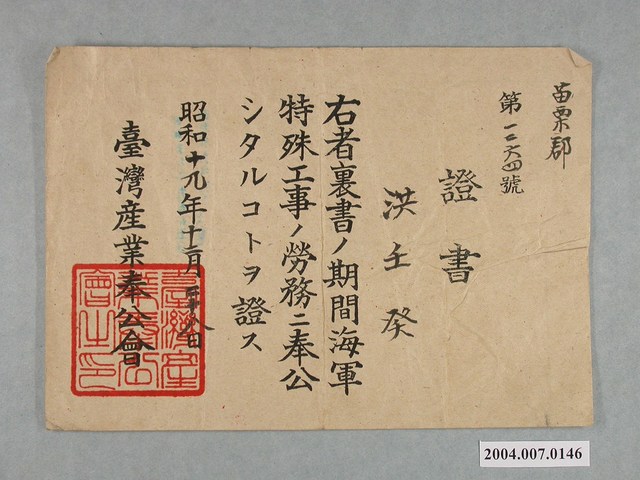 苗栗郡
第一二六四號
證書
洪壬癸
右者裏書ノ期間海軍
特殊工事ノ勞務ニ奉公
シタルコトヲ證ス
昭和十九年十二月二十八日
臺灣産業奉公會
臺灣産業奉公會之印
2004.007.0146